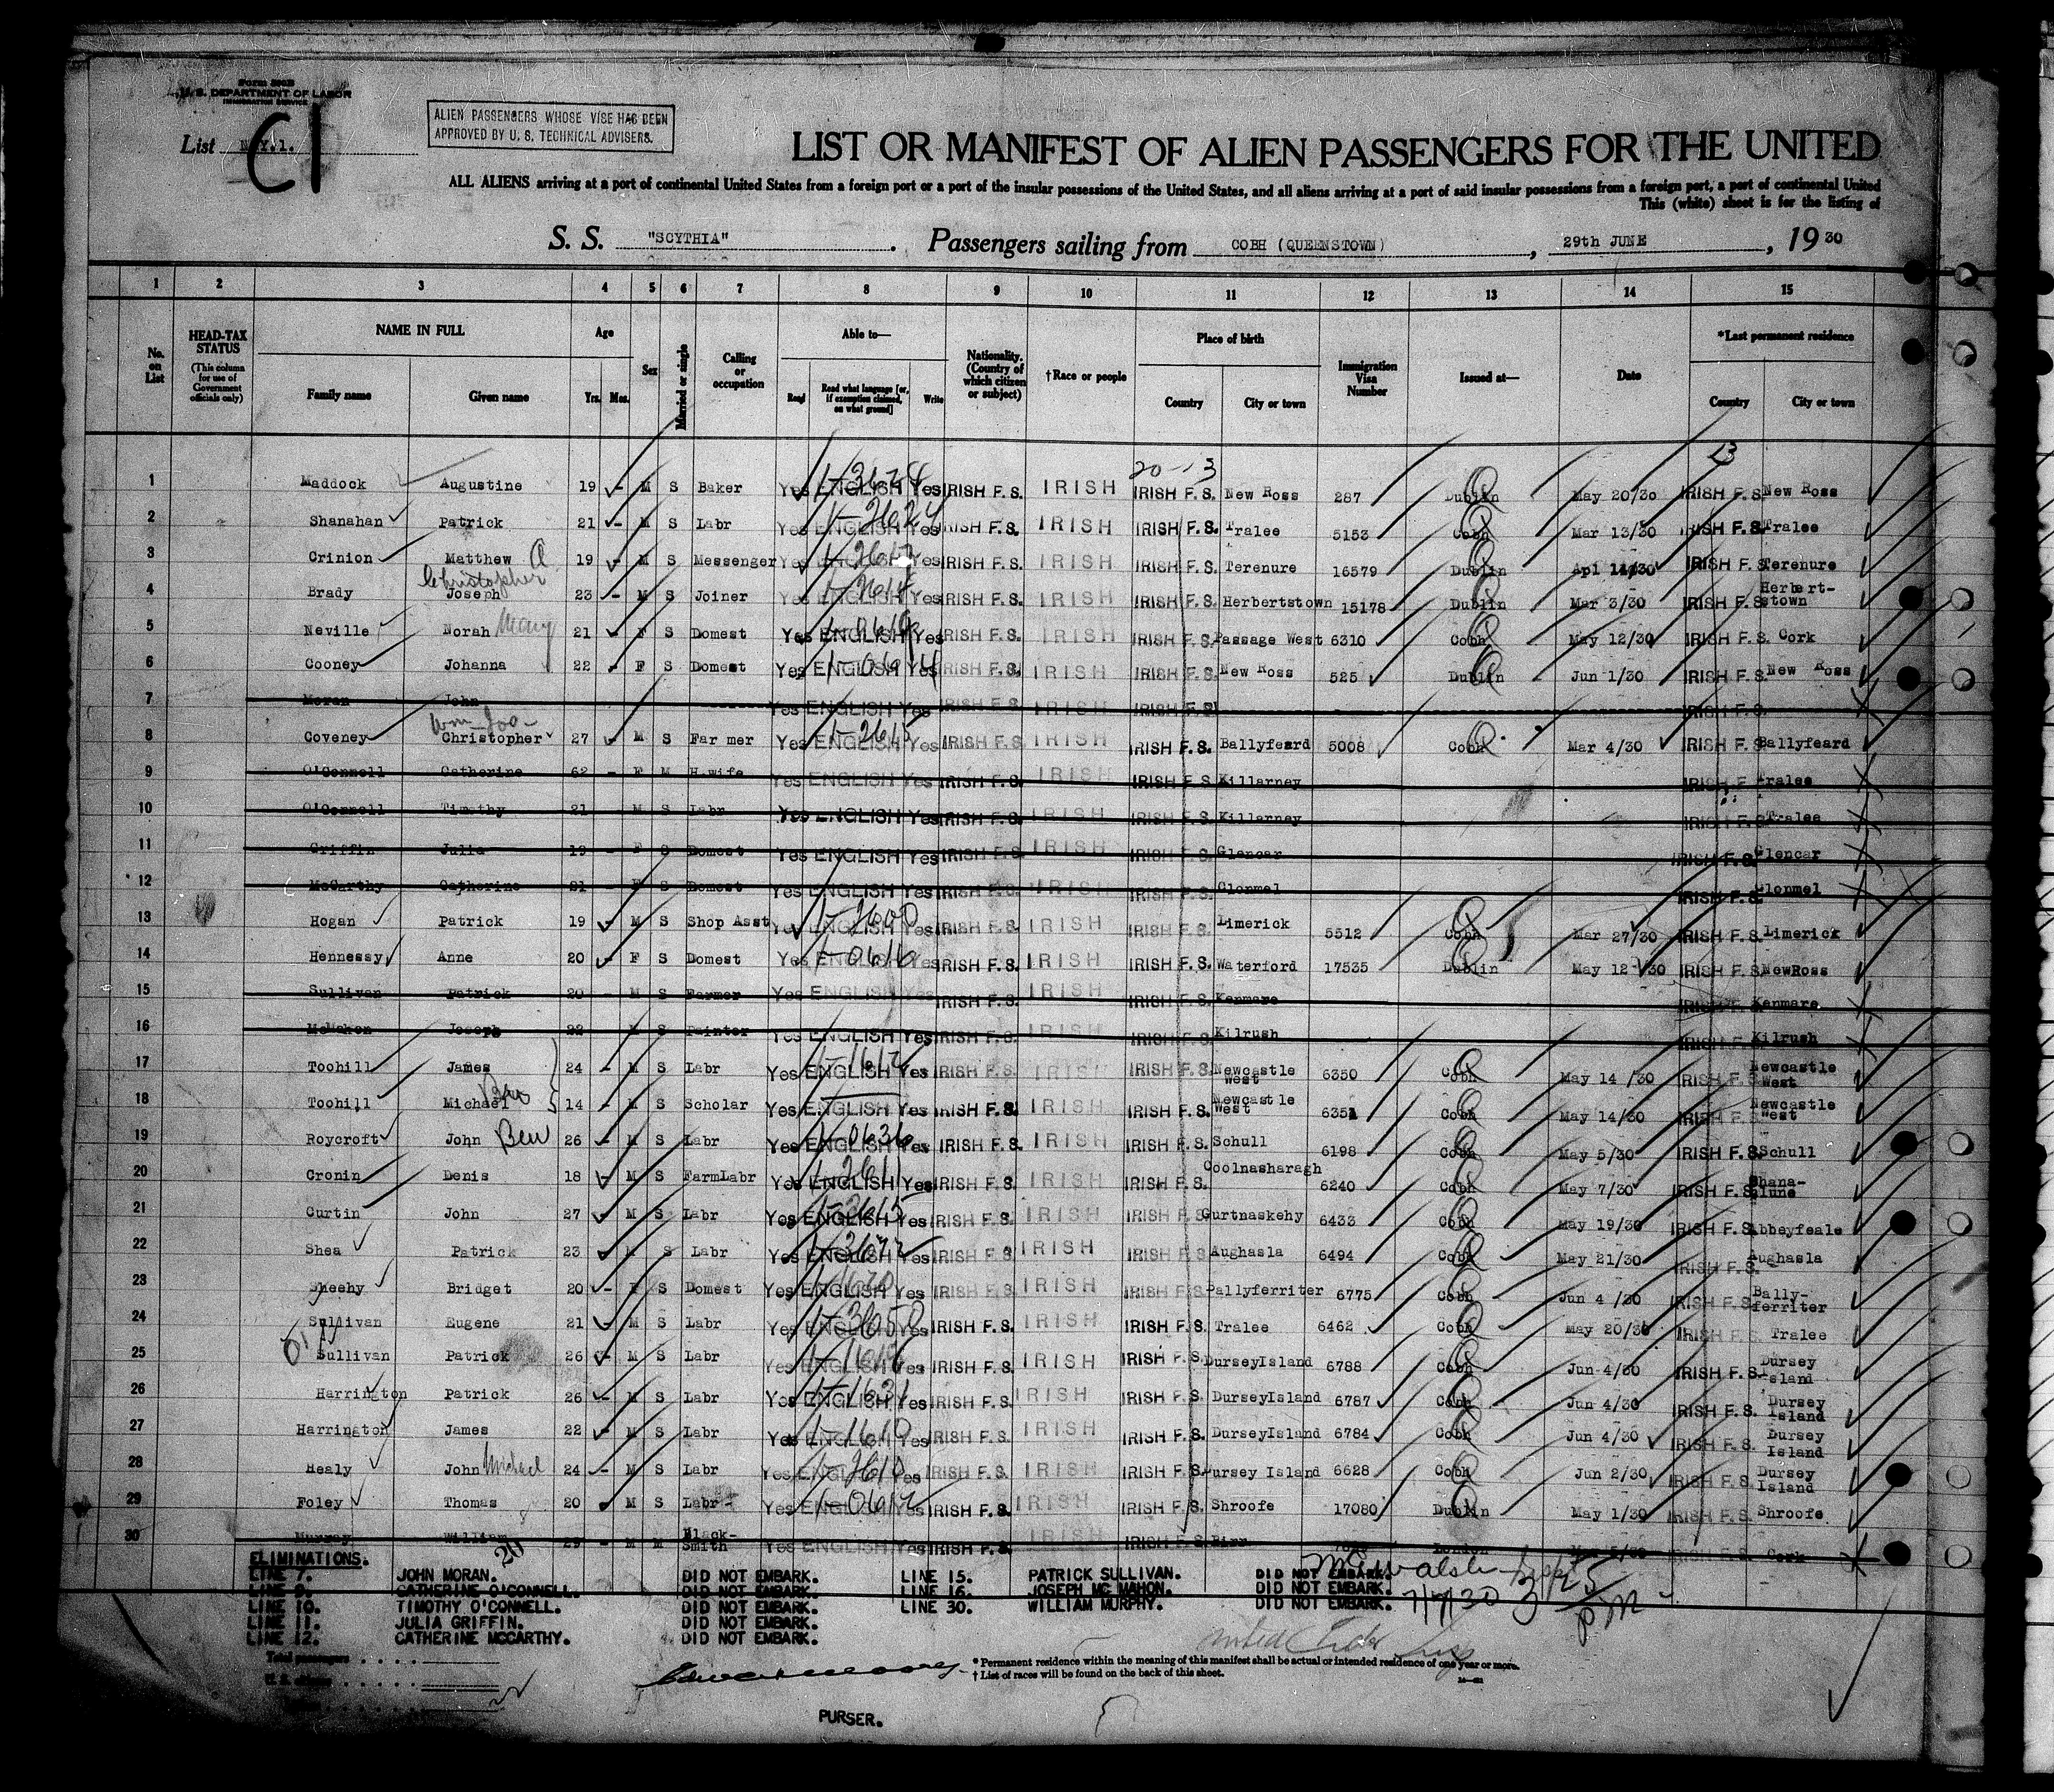 Form 500B
U. S. DEPARTMENT OF LABOR
IMMIGRATION SERVICE
List N.Y.1.
C1
ALIEN PASSENGERS WHOSE VISE HAS BEEN
APPROVED BY U. S. TECHNICAL ADVISERS.
LIST OR MANIFEST OF ALIEN PASSENGERS FOR THE UNITED
ALL ALIENS arriving at a port of continental United States from a foreign port or a port of the insular possessions of the United States, and all aliens arriving at a port of said insular possessions from a foreign port, a port of continental United
This (white) sheet is for the listing of
S. S. "SCYTHIA". Passengers sailing from COBH (QUEENSTOWN), 29th JUNE, 19 30
1 2 3 4 5 6 7 8 9 10 11 12 13 14 15
No. on List
HEAD-TAX STATUS (This column for use of Government officials only)
NAME IN FULL Family name Given name
Age Yrs. Mos.
Sex
Married or single
Calling or occupation
Able to— Read Read what language [or, if exemption claimed, on what ground] Write
Nationality. (Country of which citizen or subject)
†Race or people
Place of birth Country City or town
Immigration Visa Number
Issued at—
Date
*Last permanent residence Country City or town
20 - 13
1 Maddock Augustine 19 - M S Baker Yes ENGLISH Yes IRISH F.S. IRISH IRISH F.S. New Ross 287 Dublin May 20/30 IRISH F.S. New Ross
2 Shanahan Patrick 21 - M S Labr Yes ENGLISH Yes IRISH F.S. IRISH IRISH F.S. Tralee 5153 Cobh Mar 13/30 IRISH F.S. Tralee
3 Crinion Matthew 19 - M S Messenger Yes ENGLISH Yes IRISH F.S. IRISH IRISH F.S. Terenure 16579 Dublin Apl 14/30 IRISH F.S. Terenure
4 Brady Christopher Joseph 23 - M S Joiner Yes ENGLISH Yes IRISH F.S. IRISH IRISH F.S. Herbertstown 15178 Dublin Mar 3/30 IRISH F.S. Herbert-stown
5 Neville Norah Mary 21 - F S Domest Yes ENGLISH Yes IRISH F.S. IRISH IRISH F.S. Passage West 6310 Cobh May 12/30 IRISH F.S. Cork
6 Cooney Johanna 22 - F S Domest Yes ENGLISH Yes IRISH F.S. IRISH IRISH F.S. New Ross 525 Dublin Jun 1/30 IRISH F.S. New Ross
7 Moran John Yes ENGLISH Yes IRISH F.S. IRISH IRISH F.S. IRISH F.S.
8 Coveney Christopher 27 - M S Farmer Yes ENGLISH Yes IRISH F.S. IRISH IRISH F.S. Ballyfeard 5008 Cobh Mar 4/30 IRISH F.S. Ballyfeard
9 O'Connell Catherine 62 - F M H.wife Yes ENGLISH Yes IRISH F.S. IRISH IRISH F.S. Killarney IRISH F.S. Tralee
10 O'Connell Timothy 21 - M S Labr Yes ENGLISH Yes IRISH F.S. IRISH IRISH F.S. Killarney IRISH F.S. Tralee
11 Griffin Julia 19 - F S Domest Yes ENGLISH Yes IRISH F.S. IRISH IRISH F.S. Glencar IRISH F.S. Glencar
12 McCarthy Catherine 21 - F S Domest Yes ENGLISH Yes IRISH F.S. IRISH IRISH F.S. Clonmel IRISH F.S. Clonmel
13 Hogan Patrick 19 - M S Shop Asst Yes ENGLISH Yes IRISH F.S. IRISH IRISH F.S. Limerick 5512 Cobh Mar 27/30 IRISH F.S. Limerick
14 Hennessy Anne 20 - F S Domest Yes ENGLISH Yes IRISH F.S. IRISH IRISH F.S. Waterford 17535 Dublin May 12/30 IRISH F.S. NewRoss
15 Sullivan Patrick 20 - M S Farmer Yes ENGLISH Yes IRISH F.S. IRISH IRISH F.S. Kenmare IRISH F.S. Kenmare
16 McMahon Joseph 22 - M S Painter Yes ENGLISH Yes IRISH F.S. IRISH IRISH F.S. Kilrush IRISH F.S. Kilrush
17 Toohill James 24 - M S Labr Yes ENGLISH Yes IRISH F.S. IRISH IRISH F.S. Newcastle West 6350 Cobh May 14/30 IRISH F.S. Newcastle West
18 Toohill Michael 14 - M S Scholar Yes ENGLISH Yes IRISH F.S. IRISH IRISH F.S. Newcastle West 6351 Cobh May 14/30 IRISH F.S. Newcastle West
19 Roycroft John Ben 26 - M S Labr Yes ENGLISH Yes IRISH F.S. IRISH IRISH F.S. Schull 6198 Cobh May 5/30 IRISH F.S. Schull
20 Cronin Denis 18 - M S FarmLabr Yes ENGLISH Yes IRISH F.S. IRISH IRISH F.S. Coolnasharagh 6240 Cobh May 7/30 IRISH F.S. Shana-
21 Curtin John 27 - M S Labr Yes ENGLISH Yes IRISH F.S. IRISH IRISH F.S. Gurtnaskehy 6433 Cobh May 19/30 IRISH F.S. Abbeyfeale
22 Shea Patrick 23 - M S Labr Yes ENGLISH Yes IRISH F.S. IRISH IRISH F.S. Aughasla 6494 Cobh May 21/30 IRISH F.S. Aughasla
23 Sheehy Bridget 20 - F S Domest Yes ENGLISH Yes IRISH F.S. IRISH IRISH F.S. Ballyferriter 6775 Cobh Jun 4/30 IRISH F.S. Bally-ferriter
24 Sullivan Eugene 21 - M S Labr Yes ENGLISH Yes IRISH F.S. IRISH IRISH F.S. Tralee 6462 Cobh May 20/30 IRISH F.S. Tralee
25 O' Sullivan Patrick 26 - M S Labr Yes ENGLISH Yes IRISH F.S. IRISH IRISH F.S. DurseyIsland 6788 Cobh Jun 4/30 IRISH F.S. Dursey Island
26 Harrington Patrick 26 - M S Labr Yes ENGLISH Yes IRISH F.S. IRISH IRISH F.S. DurseyIsland 6787 Cobh Jun 4/30 IRISH F.S. Dursey Island
27 Harrington James 22 - M S Labr Yes ENGLISH Yes IRISH F.S. IRISH IRISH F.S. DurseyIsland 6784 Cobh Jun 4/30 IRISH F.S. Dursey Island
28 Healy John Michael 24 - M S Labr Yes ENGLISH Yes IRISH F.S. IRISH IRISH F.S. Dursey Island 6628 Cobh Jun 2/30 IRISH F.S. Dursey Island
29 Foley Thomas 20 - M S Labr Yes ENGLISH Yes IRISH F.S. IRISH IRISH F.S. Shroofe 17080 Dublin May 1/30 IRISH F.S. Shroofe
30 Murray William 29 - M M Black-Smith Yes ENGLISH Yes IRISH F.S. IRISH IRISH F.S. Birr London IRISH F.S. Cork
ELIMINATIONS.
LINE 7. JOHN MORAN. DID NOT EMBARK. LINE 15. PATRICK SULLIVAN. DID NOT EMBARK.
LINE 9. CATHERINE O'CONNELL. DID NOT EMBARK. LINE 16. JOSEPH MC MAHON. DID NOT EMBARK.
LINE 10. TIMOTHY O'CONNELL. DID NOT EMBARK. LINE 30. WILLIAM MURPHY. DID NOT EMBARK.
LINE 11. JULIA GRIFFIN. DID NOT EMBARK.
LINE 12. CATHERINE MCCARTHY. DID NOT EMBARK.
7/7/30
Total passengers
* Permanent residence within the meaning of this manifest shall be actual or intended residence of one year or more.
† List of races will be found on the back of this sheet.
PURSER.